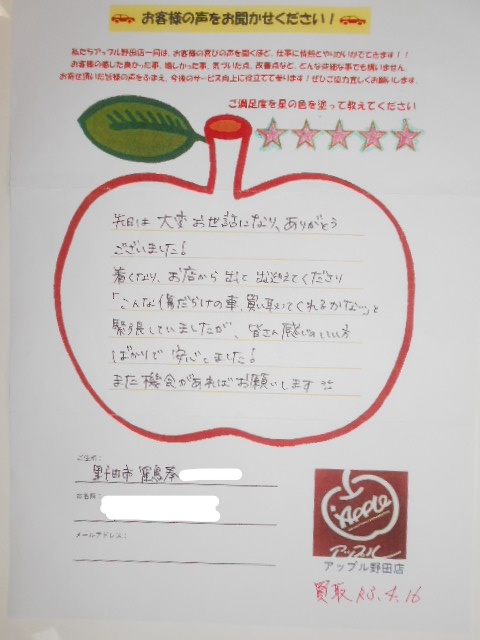 お客様の声をお聞かせください！
私たちアップル野田店一同は、お客様の喜びの声を聞くほど、仕事に情熱とやりがいがでてきます！！
お客様の感じた良かった事、嬉しかった事、気づいた点、改善点など、どんな些細な事でも構いません。
お寄せ頂いた皆様の声をふまえ、今後のサービス向上に役立てて参ります！ぜひご協力宜しくお願いします。
ご満足度を星の色を塗って教えてください
先日は 大変 お世話になり、ありがとう
ございました！
着くなり、お店から 出て 出迎えてくださり
「こんな傷だらけの車、買い取ってくれるかな…」と
緊張していましたが、皆さん感じのいい方
ばかりで 安心しました！
また機会があればお願いします
ご住所：
野田市
お名前：
メールアドレス：
Apple
アップル
アップル野田店
買取 R3.4.16